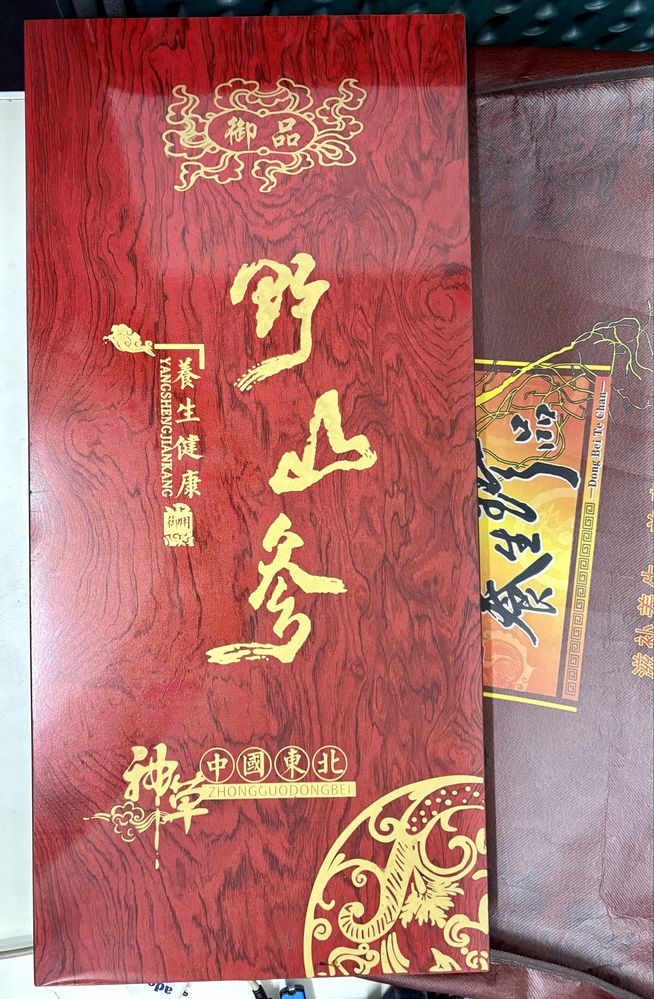 御品
野山参
養生健康
YANGSHENGJIANKANG
御用
神草
中國東北
ZHONGGUODONGBEI
养生珍品
—Dong Bei Te Chan—
滋补养生